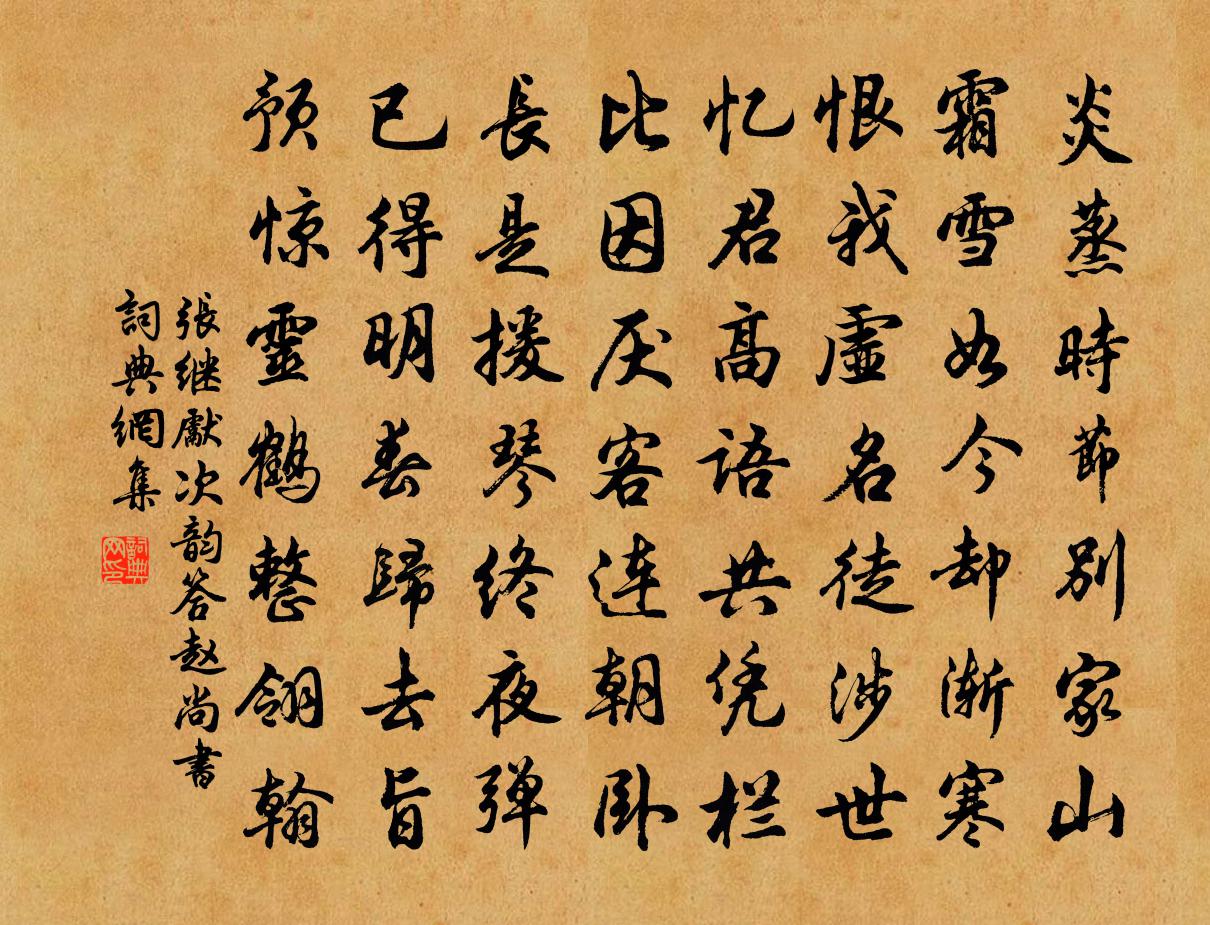 炎蒸時節別家山
霜雪如今却渐寒
恨我虚名徒涉世
忆君高语共凭栏
比因厌客连朝卧
長是援琴终夜弹
已得明春歸去旨
预惊靈鹤整翎翰
張继獻次韵答赵尚書
詞典網集
詞典
网印